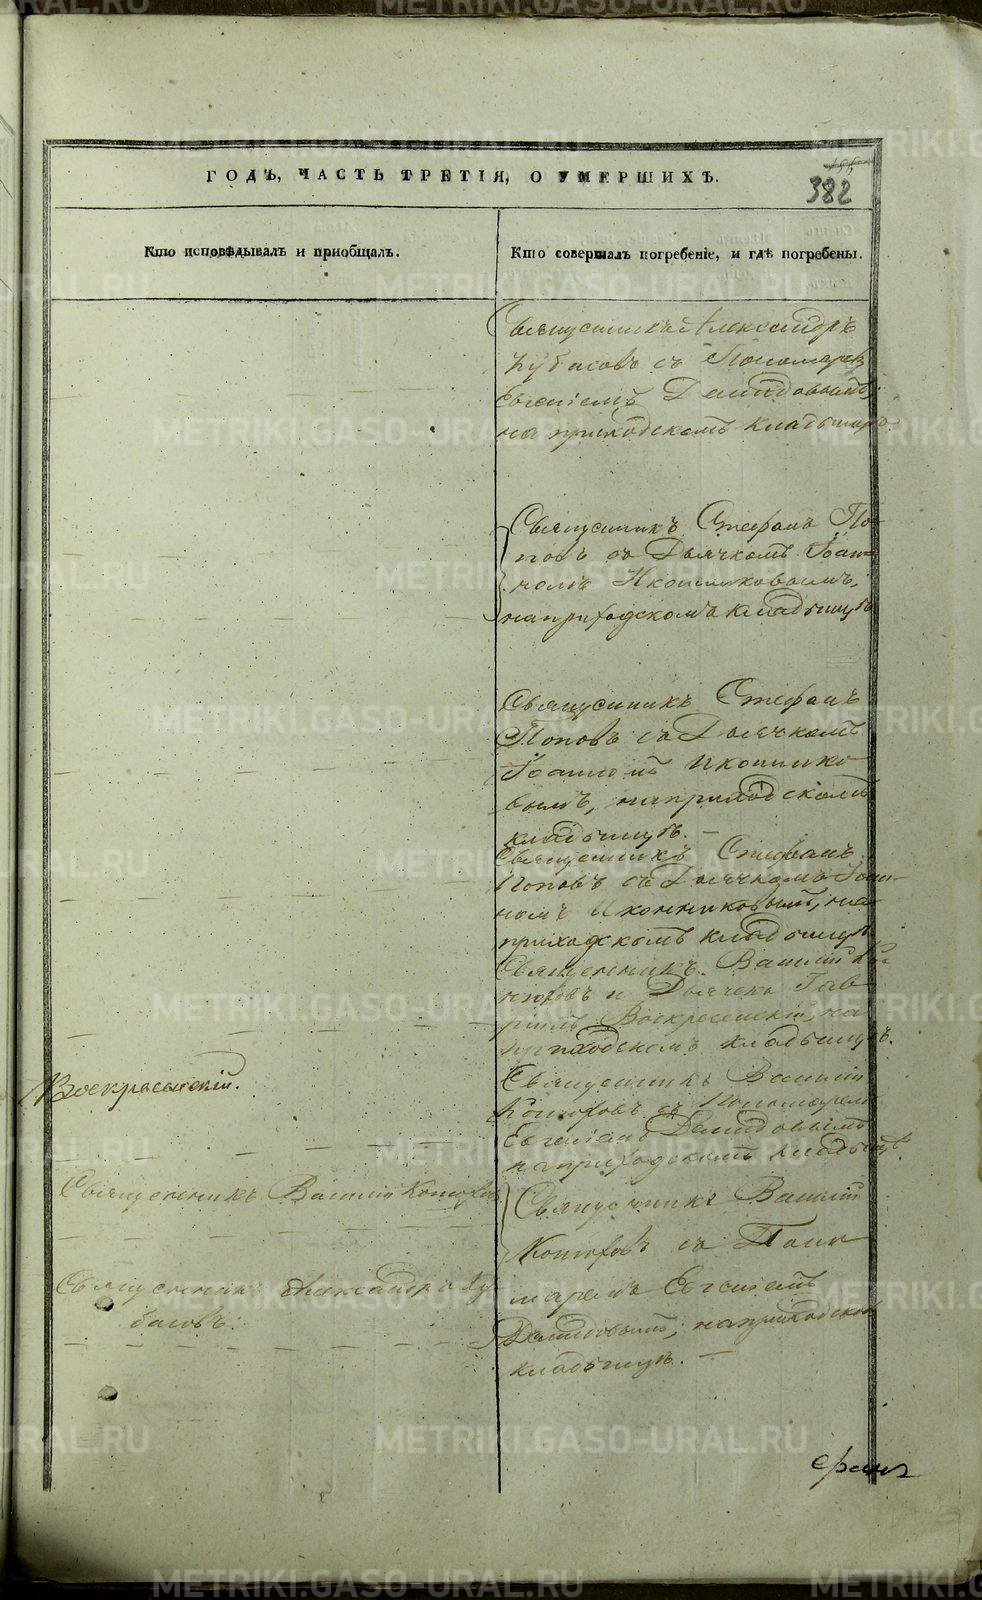 ГОДЪ, ЧАСТЬ ТРЕТІЯ, О УМЕРШИХЪ.
382
Кто исповѣдывалъ и пріобщалъ.
Кто совершалъ погребеніе, и гдѣ погребены.
Священникъ Александръ
Кубасовъ съ Пономарем
Евгеніемъ Демидовымъ,
на приходскомъ кладбищѣ
Священникъ Стефанъ По-
повъ съ Дьячкомъ Іоан-
номъ Иконниковымъ,
на приходскомъ кладбищѣ
Священникъ Стефанъ
Поповъ съ Дьячкомъ
Іоанномъ Иконнико
вымъ, на приходскомъ
кладбищѣ. —
Священникъ Стефанъ
Поповъ съ Дьячкомъ Іоан-
номъ Иконниковымъ, на
приходскомъ кладбищѣ
Священникъ Василій
и Дьячекъ Гав
риилъ Воскресенскій, на
приходскомъ кладбищѣ.
Воскресенскій.
Священникъ Василій
съ Пономаремъ
Евгеніемъ Демидовымъ
на приходскомъ кладбищѣ.
Священникъ Василій
Священникъ Василій
съ Поно
маремъ Евгеніемъ
Демидовымъ, на приходском
кладбищѣ. —
Священникъ Александръ Ку
басовъ.
METRIKI.GASO-URAL.RU